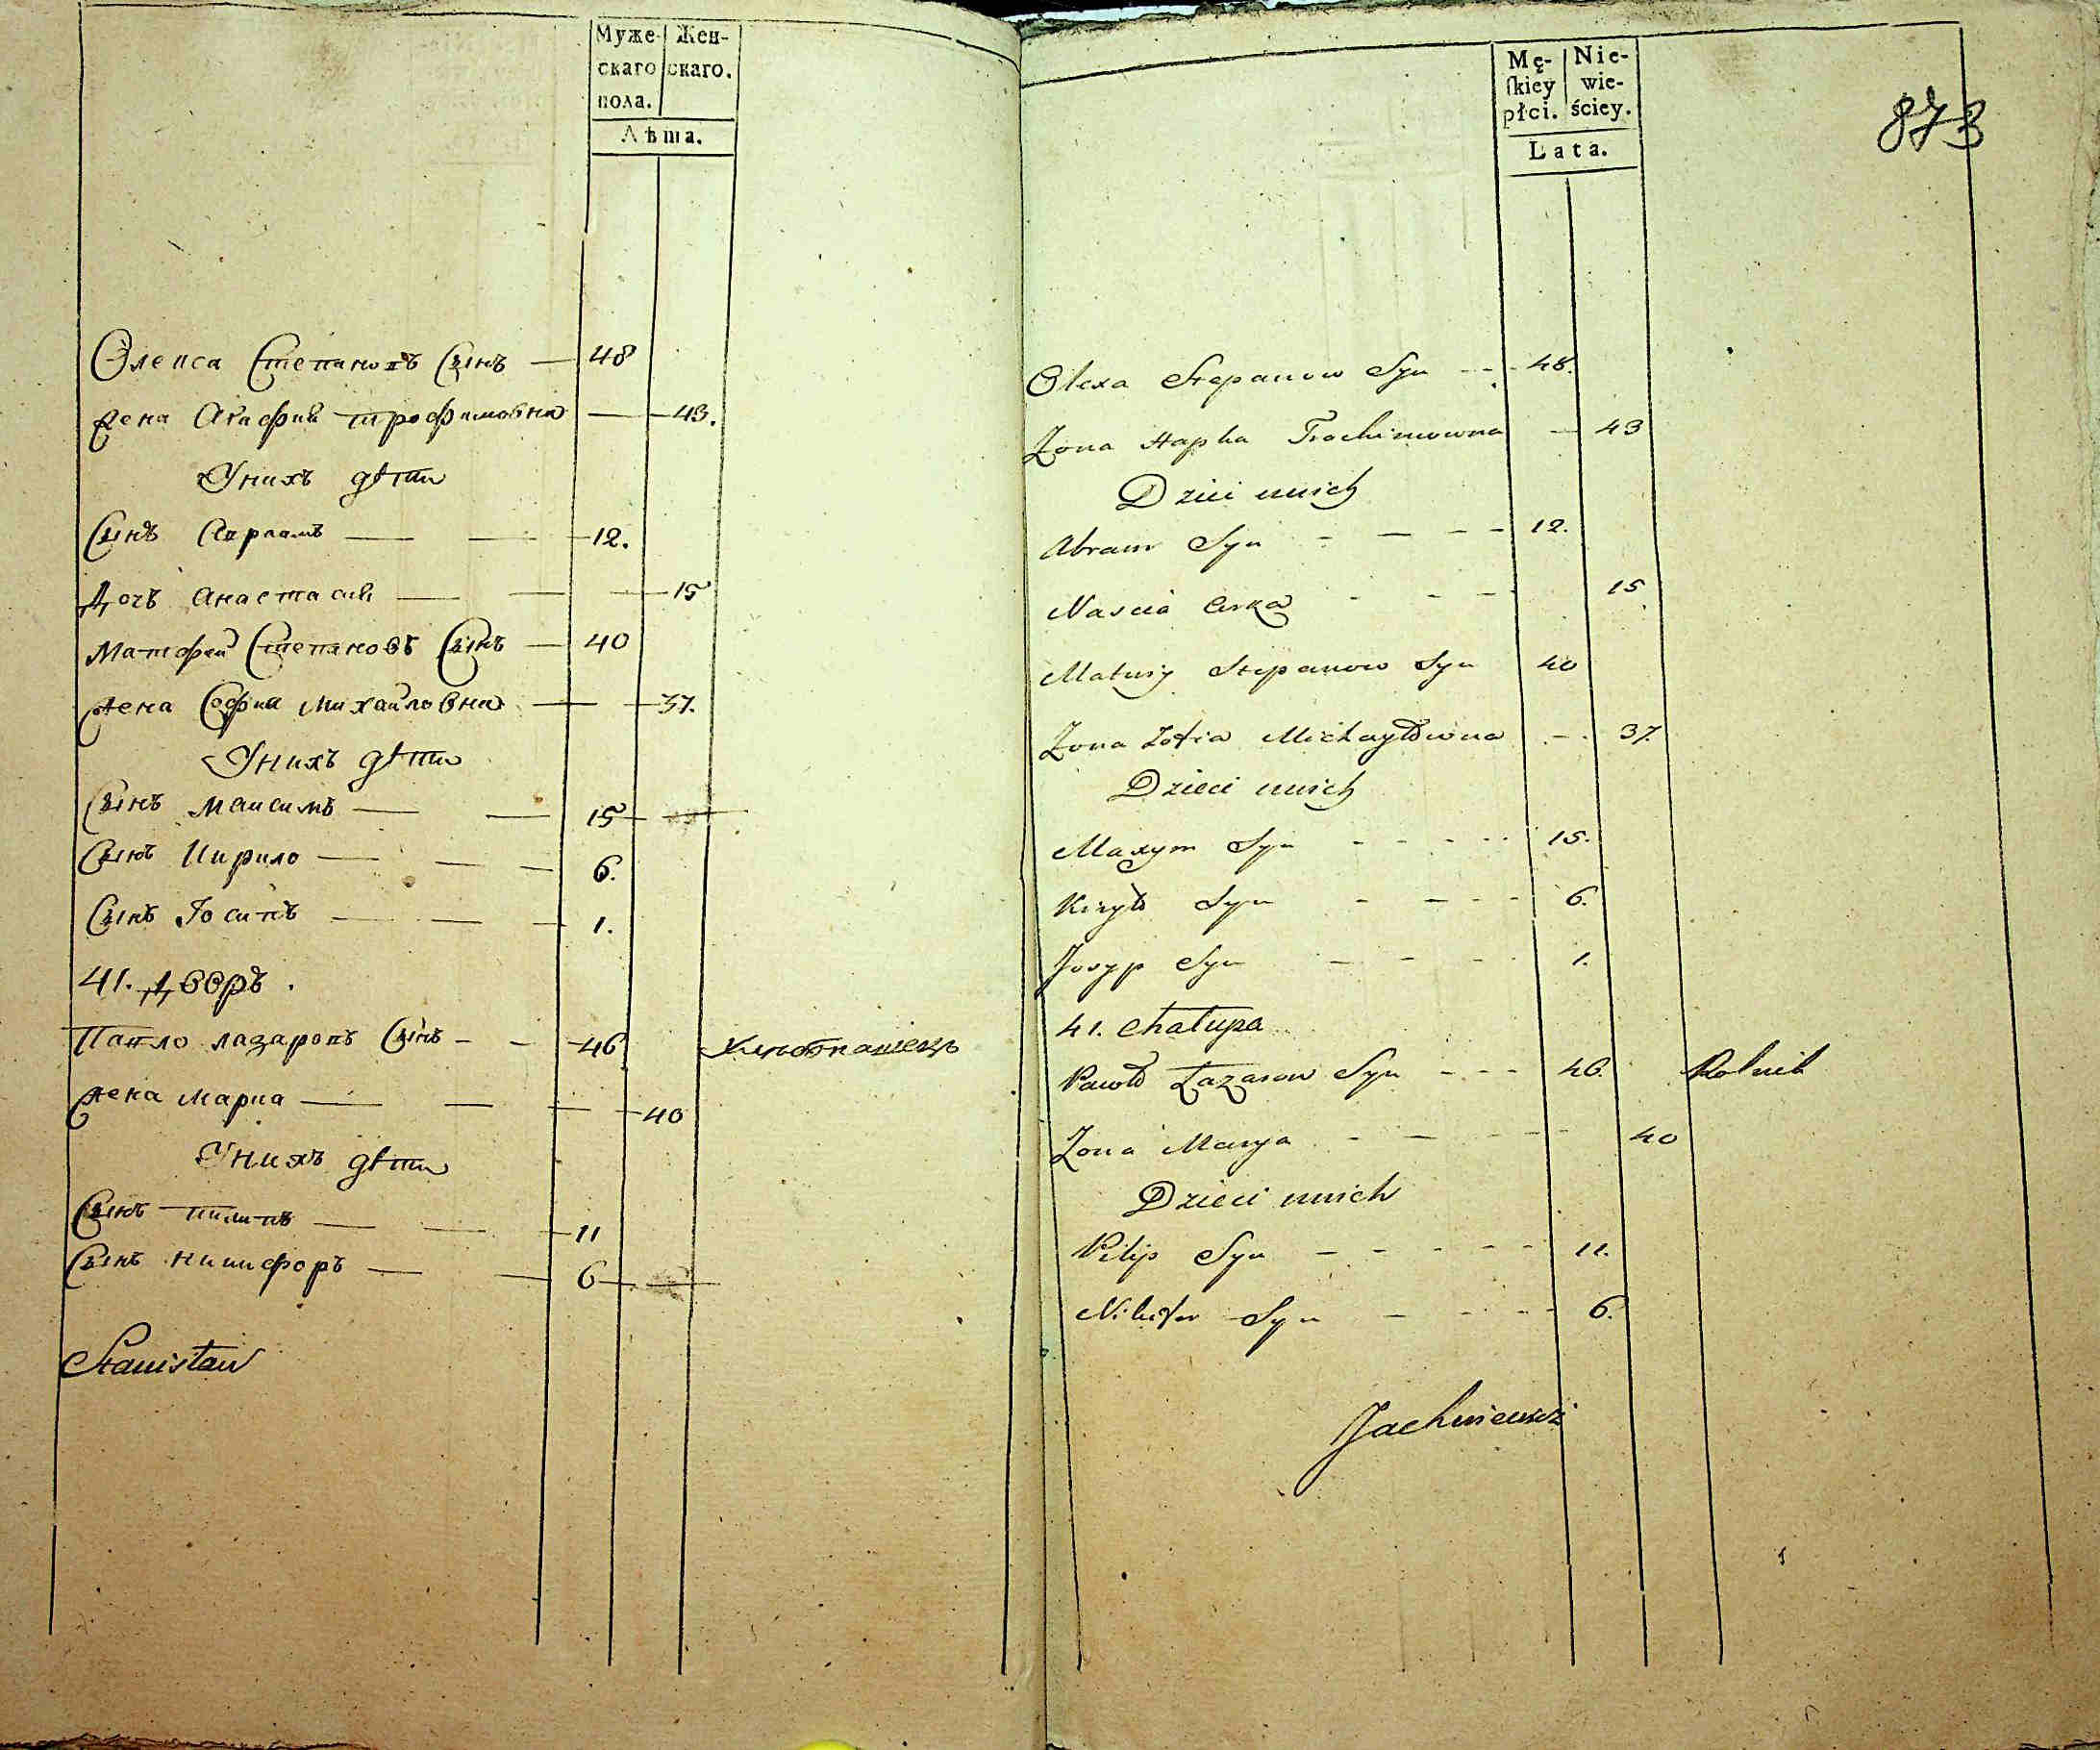 Муже- Жен-
скаго скаго.
пола.
Лѣта.
Олекса Степановъ Сынъ — 48
Жена Агафия Трофимовна — 43.
У нихъ дѣти
Сынъ Авраамъ — 12.
Дочъ Анастасия — 15
Матфей Степановъ Сынъ — 40
Жена София Михайловна — 37.
У нихъ дѣти
Сынъ Максимъ — 15
Сынъ Кирило — 6.
Сынъ Іосипъ — 1.
41. Дворъ.
Павло Лазаровъ Сынъ — 46 Хлѣбопашецъ
Жена Мариа — 40
У нихъ дѣти
Сынъ Пилипъ — 11
Сынъ Никифоръ — 6
Stanisław
873
Mę- Nie-
ſkiey wie-
płci. ściey.
Lata.
Olexa Stepanow Syn — 48.
Żona Hapka Trochimowna — 43
Dzieci unich
Abram Syn — 12.
Nascia Curka — 15
Matwiy Stepanow Syn 40
Żona Zofia Michayłowna — 37.
Dzieci unich
Maxym Syn — 15.
Kiryło Syn — 6.
Josyp Syn — 1.
41. Chałupa
Pawło Łazarow Syn — 46. Rolnik
Żona Marya — 40
Dzieci unich
Pilip Syn — 11.
Nikifor Syn — 6.